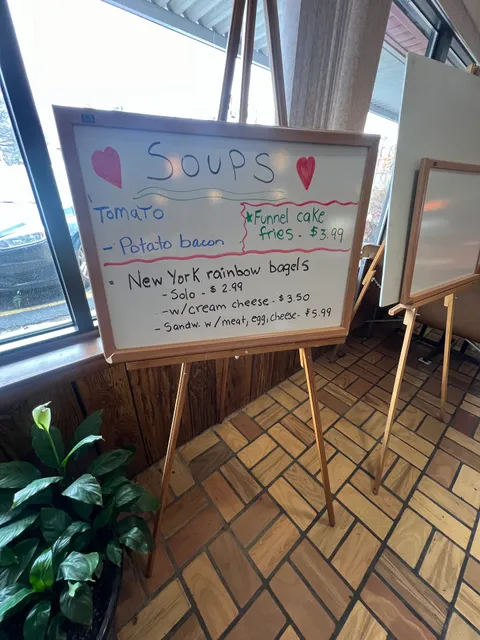 SOUPS
Tomato
- Potato bacon
*Funnel cake
fries - $3.99
• New York rainbow bagels
- Solo - $2.99
- w/cream cheese - $3.50
- Sandw. w/meat, egg, cheese - $5.99